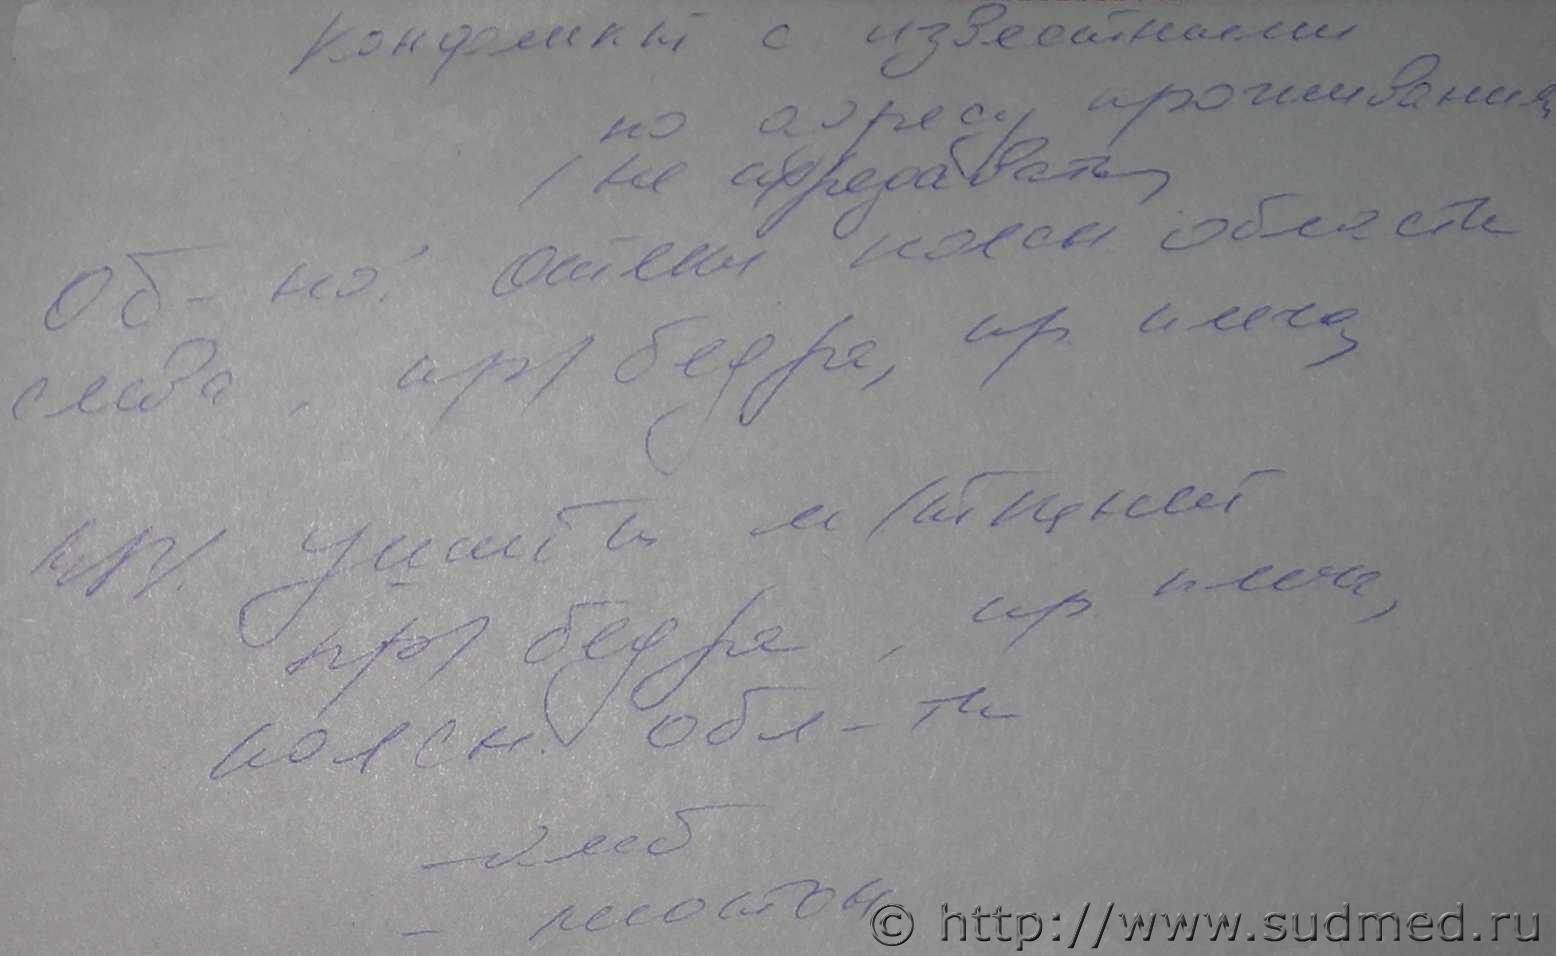 Конфликт с известными
по адресу проживания
/ не передавать
Об-но: Отеки поясн области
слева, пр/ бедра, пр. плеча
Ушибы м/тканей
пр/ бедра, пр. плеча,
поясн. обл-ти
© http://www.sudmed.ru